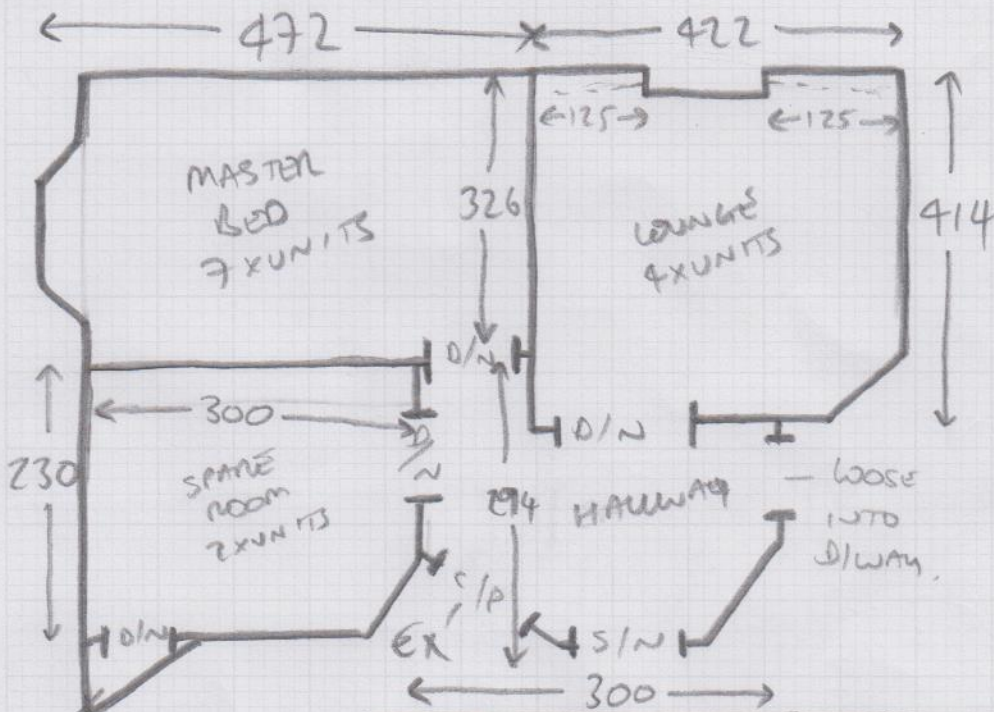 472
422
125
125
MASTER
BED
7 X UNITS
326
LOUNGE
4 X UNITS
414
D/N
300
D/N
D/N
230
SPARE
ROOM
2 X UNITS
294
HALLWAY
— LOOSE
INTO
D/WAY.
D/N
EX'
S/N
300